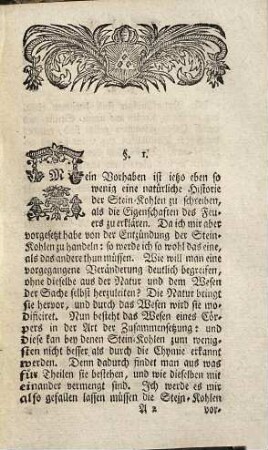 §. 1.
Mein Vorhaben ist ietzo eben so
wenig eine natürliche Historie
der Stein-Kohlen zu schreiben,
als die Eigenschaften des Feu-
ers zu erklären. Da ich mir aber
vorgesetzt habe von der Entzündung der Stein-
Kohlen zu handeln: so werde ich so wohl das eine,
als das andere thun müssen. Wie will man eine
vorgegangene Veränderung deutlich begreifen,
ohne dieselbe aus der Natur und dem Wesen
der Sache selbst herzuleiten? Die Natur bringt
sie hervor, und durch das Wesen wird sie mo-
dificiret. Nun bestehet das Wesen eines Cör-
pers in der Art der Zusammensetzung: und
diese kan bey denen Stein-Kohlen zum wenig-
sten nicht besser, als durch die Chymie erkannt
werden. Denn dadurch findet man aus was
für Theilen sie bestehen, und wie dieselben mit
einander vermengt sind. Jch werde es mir
also gefallen lassen müssen die Stein-Kohlen
A 2 vor-